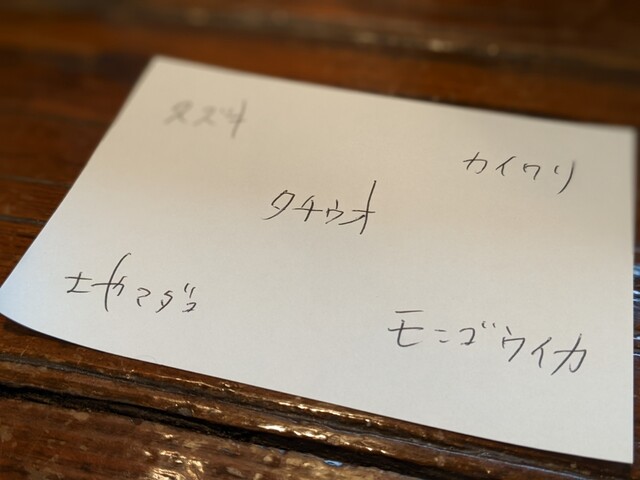 スズキ
カイワリ
タチウオ
マダコ
モンゴウイカ